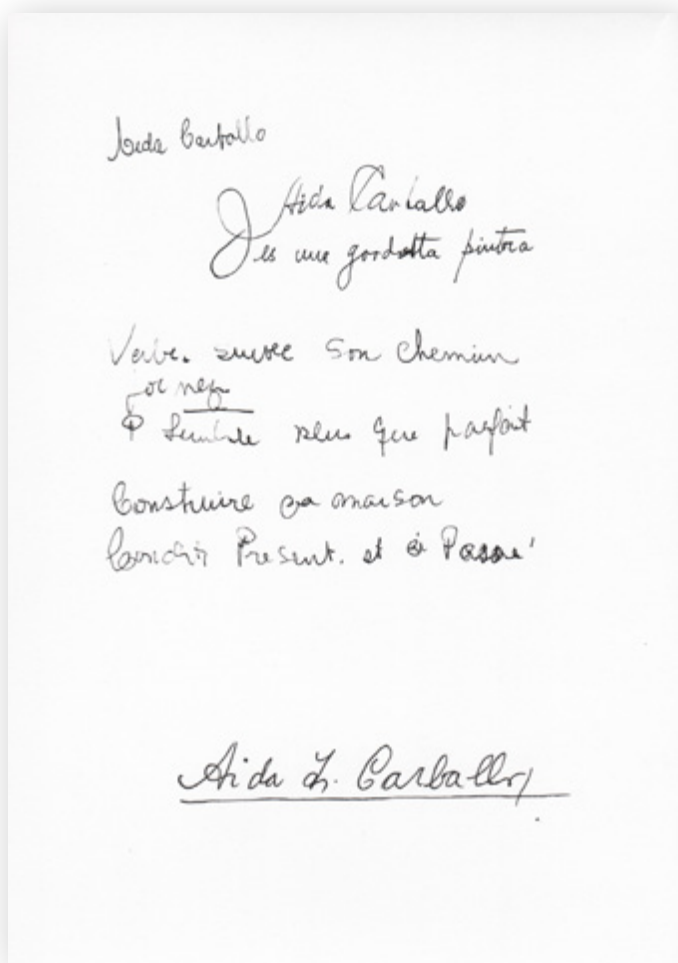 Aida Carballo
Aida Carballo
es una gordetta pintra
Verbe. suivre son chemin
ou neg
semble plus que parfait
Construire sa maison
Present. et à Passé
Aida L. Carballo